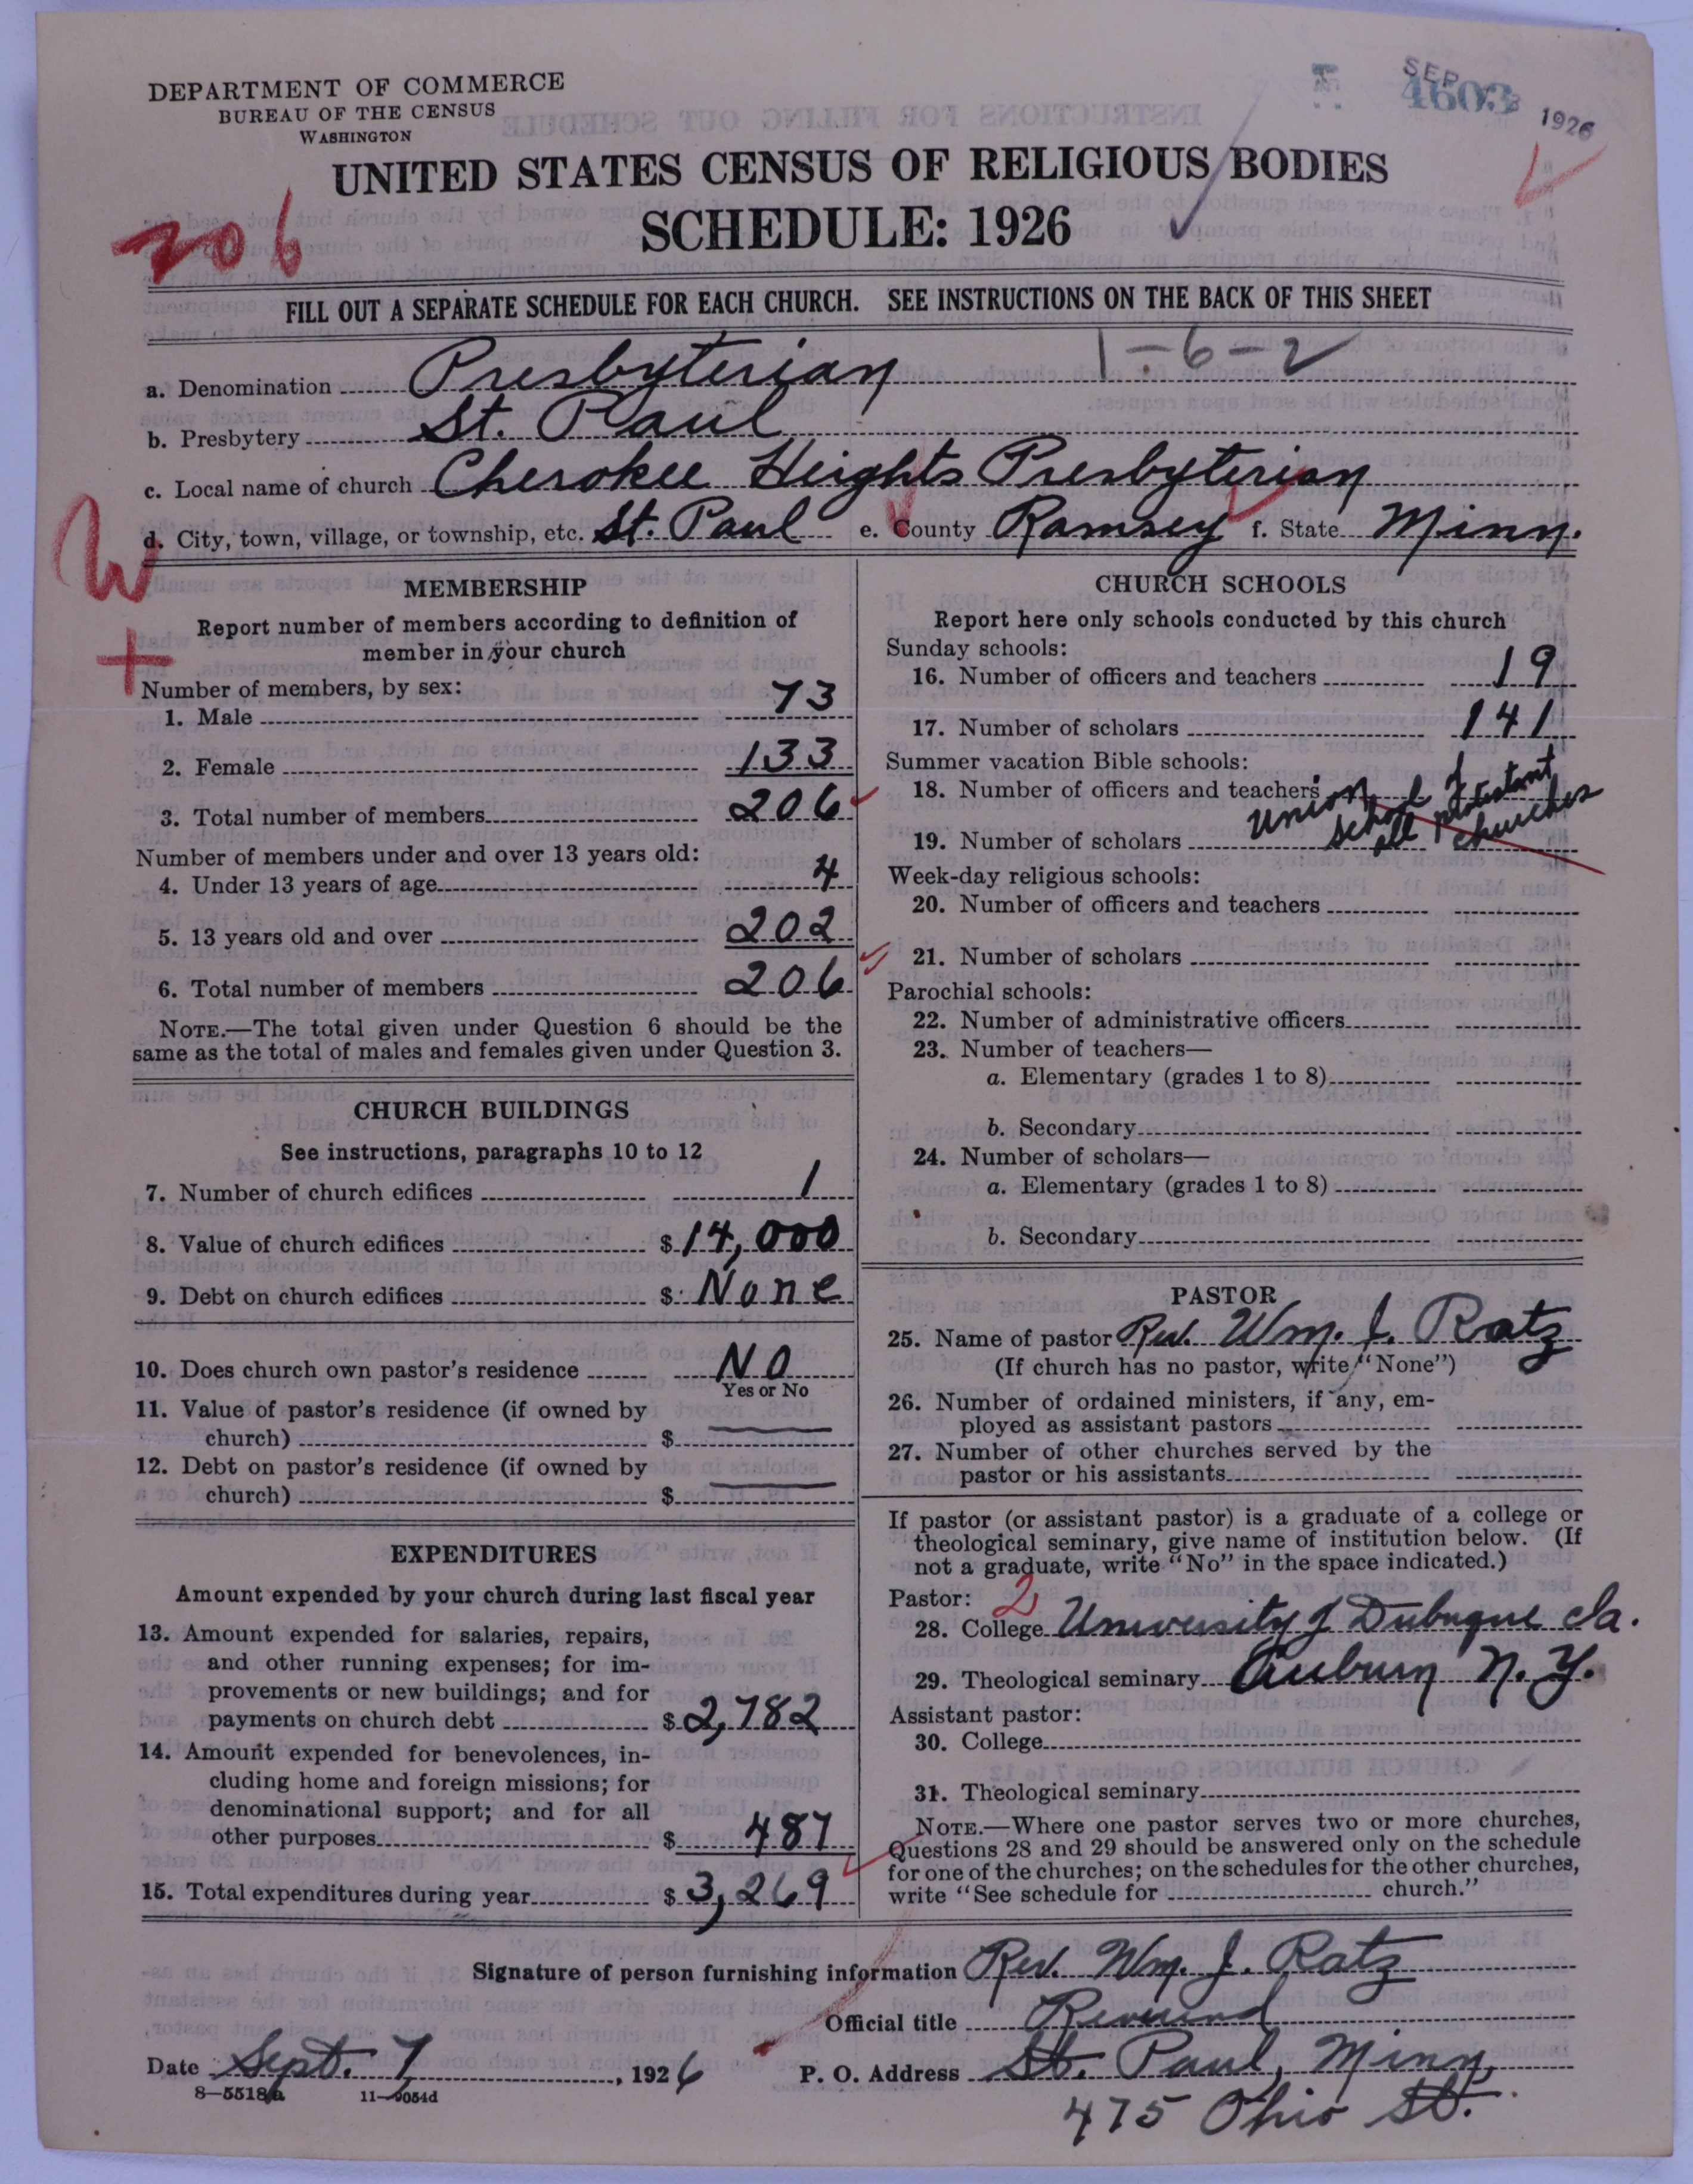 DEPARTMENT OF COMMERCE
BUREAU OF THE CENSUS
WASHINGTON
SEP 1926
4603
UNITED STATES CENSUS OF RELIGIOUS BODIES
SCHEDULE: 1926
206
FILL OUT A SEPARATE SCHEDULE FOR EACH CHURCH. SEE INSTRUCTIONS ON THE BACK OF THIS SHEET
1-6-2
a. Denomination Presbyterian
b. Presbytery St. Paul
c. Local name of church Cherokee Heights Presbyterian
d. City, town, village, or township, etc. St. Paul e. County Ramsey f. State Minn.
W
+
MEMBERSHIP
Report number of members according to definition of
member in your church
Number of members, by sex:
1. Male 73
2. Female 133
3. Total number of members 206
Number of members under and over 13 years old:
4. Under 13 years of age 4
5. 13 years old and over 202
6. Total number of members 206
NOTE.—The total given under Question 6 should be the
same as the total of males and females given under Question 3.
CHURCH BUILDINGS
See instructions, paragraphs 10 to 12
7. Number of church edifices 1
8. Value of church edifices $14,000
9. Debt on church edifices $ None
10. Does church own pastor's residence No
Yes or No
11. Value of pastor's residence (if owned by
church) $
12. Debt on pastor's residence (if owned by
church) $
EXPENDITURES
Amount expended by your church during last fiscal year
13. Amount expended for salaries, repairs,
and other running expenses; for im-
provements or new buildings; and for
payments on church debt $2,782
14. Amount expended for benevolences, in-
cluding home and foreign missions; for
denominational support; and for all
other purposes $ 487
15. Total expenditures during year $3,269
CHURCH SCHOOLS
Report here only schools conducted by this church
Sunday schools:
16. Number of officers and teachers 19
17. Number of scholars 141
Summer vacation Bible schools:
18. Number of officers and teachers
Union school of
all protestant
churches
19. Number of scholars
Week-day religious schools:
20. Number of officers and teachers
21. Number of scholars
Parochial schools:
22. Number of administrative officers
23. Number of teachers—
a. Elementary (grades 1 to 8)
b. Secondary
24. Number of scholars—
a. Elementary (grades 1 to 8)
b. Secondary
PASTOR
25. Name of pastor Rev. Wm. J. Ratz
(If church has no pastor, write "None")
26. Number of ordained ministers, if any, em-
ployed as assistant pastors
27. Number of other churches served by the
pastor or his assistants
If pastor (or assistant pastor) is a graduate of a college or
theological seminary, give name of institution below. (If
not a graduate, write "No" in the space indicated.)
Pastor: 2
28. College University of Dubuque Ia.
29. Theological seminary Auburn N.Y.
Assistant pastor:
30. College
31. Theological seminary
NOTE.—Where one pastor serves two or more churches,
Questions 28 and 29 should be answered only on the schedule
for one of the churches; on the schedules for the other churches,
write "See schedule for church."
Signature of person furnishing information Rev. Wm. J. Ratz
Official title Reverend
Date Sept. 7, 1926 P. O. Address St. Paul, Minn.
475 Ohio St.
8-5518a 11-9054d